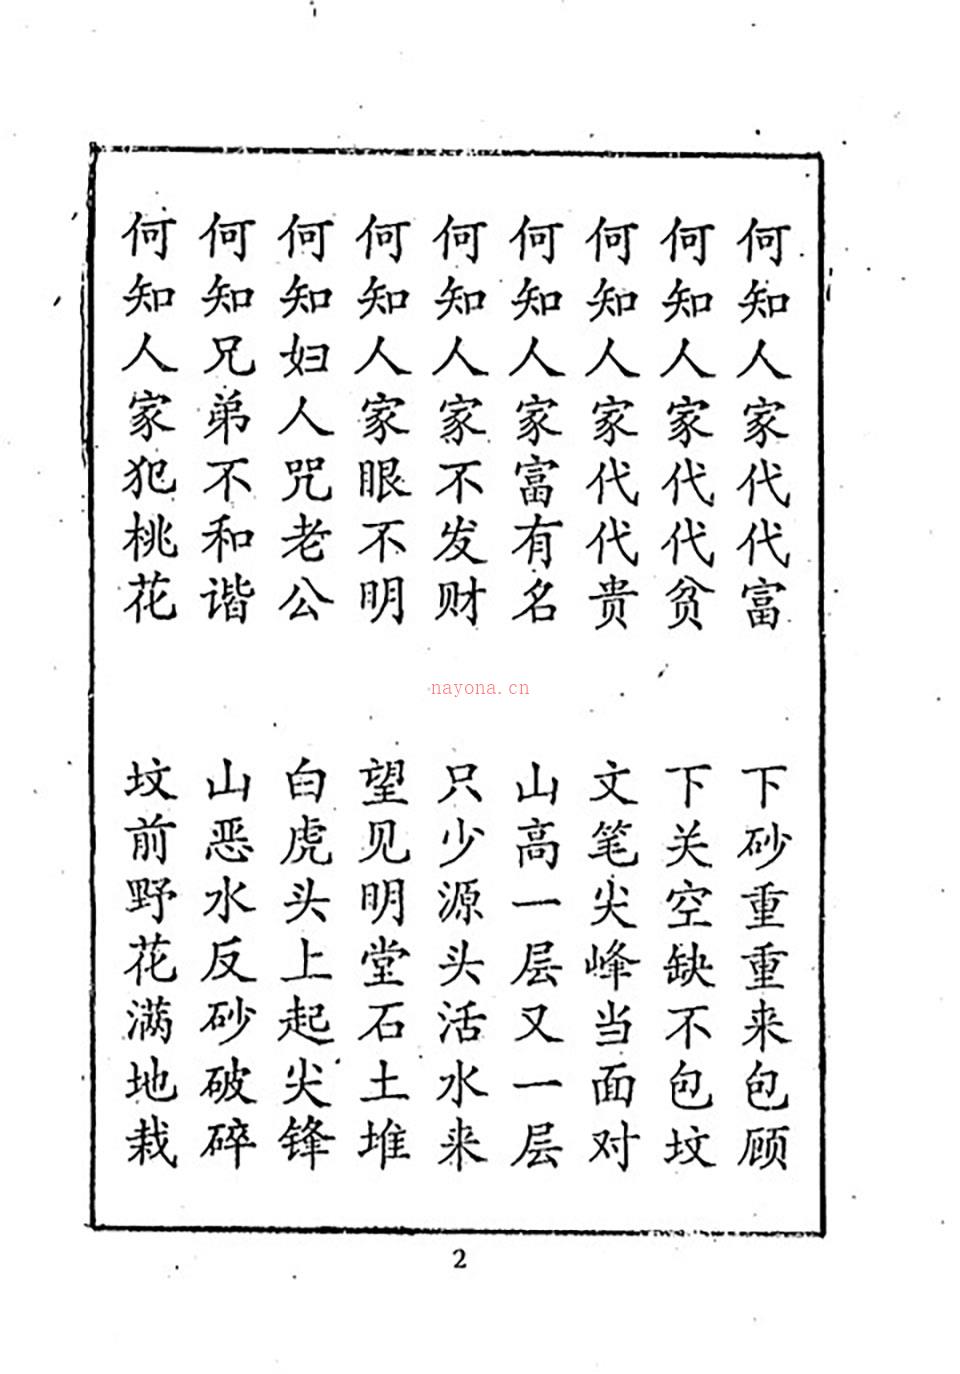 何知人家代代富 下砂重重来包顾
何知人家代代贫 下关空缺不包坟
何知人家代代贵 文笔尖峰当面对
何知人家富有名 山高一层又一层
何知人家不发财 只少源头活水来
何知人家眼不明 望见明堂石土堆
何知妇人咒老公 白虎头上起尖锋
何知兄弟不和谐 山恶水反砂破碎
何知人家犯桃花 坟前野花满地栽
nayona.cn
2